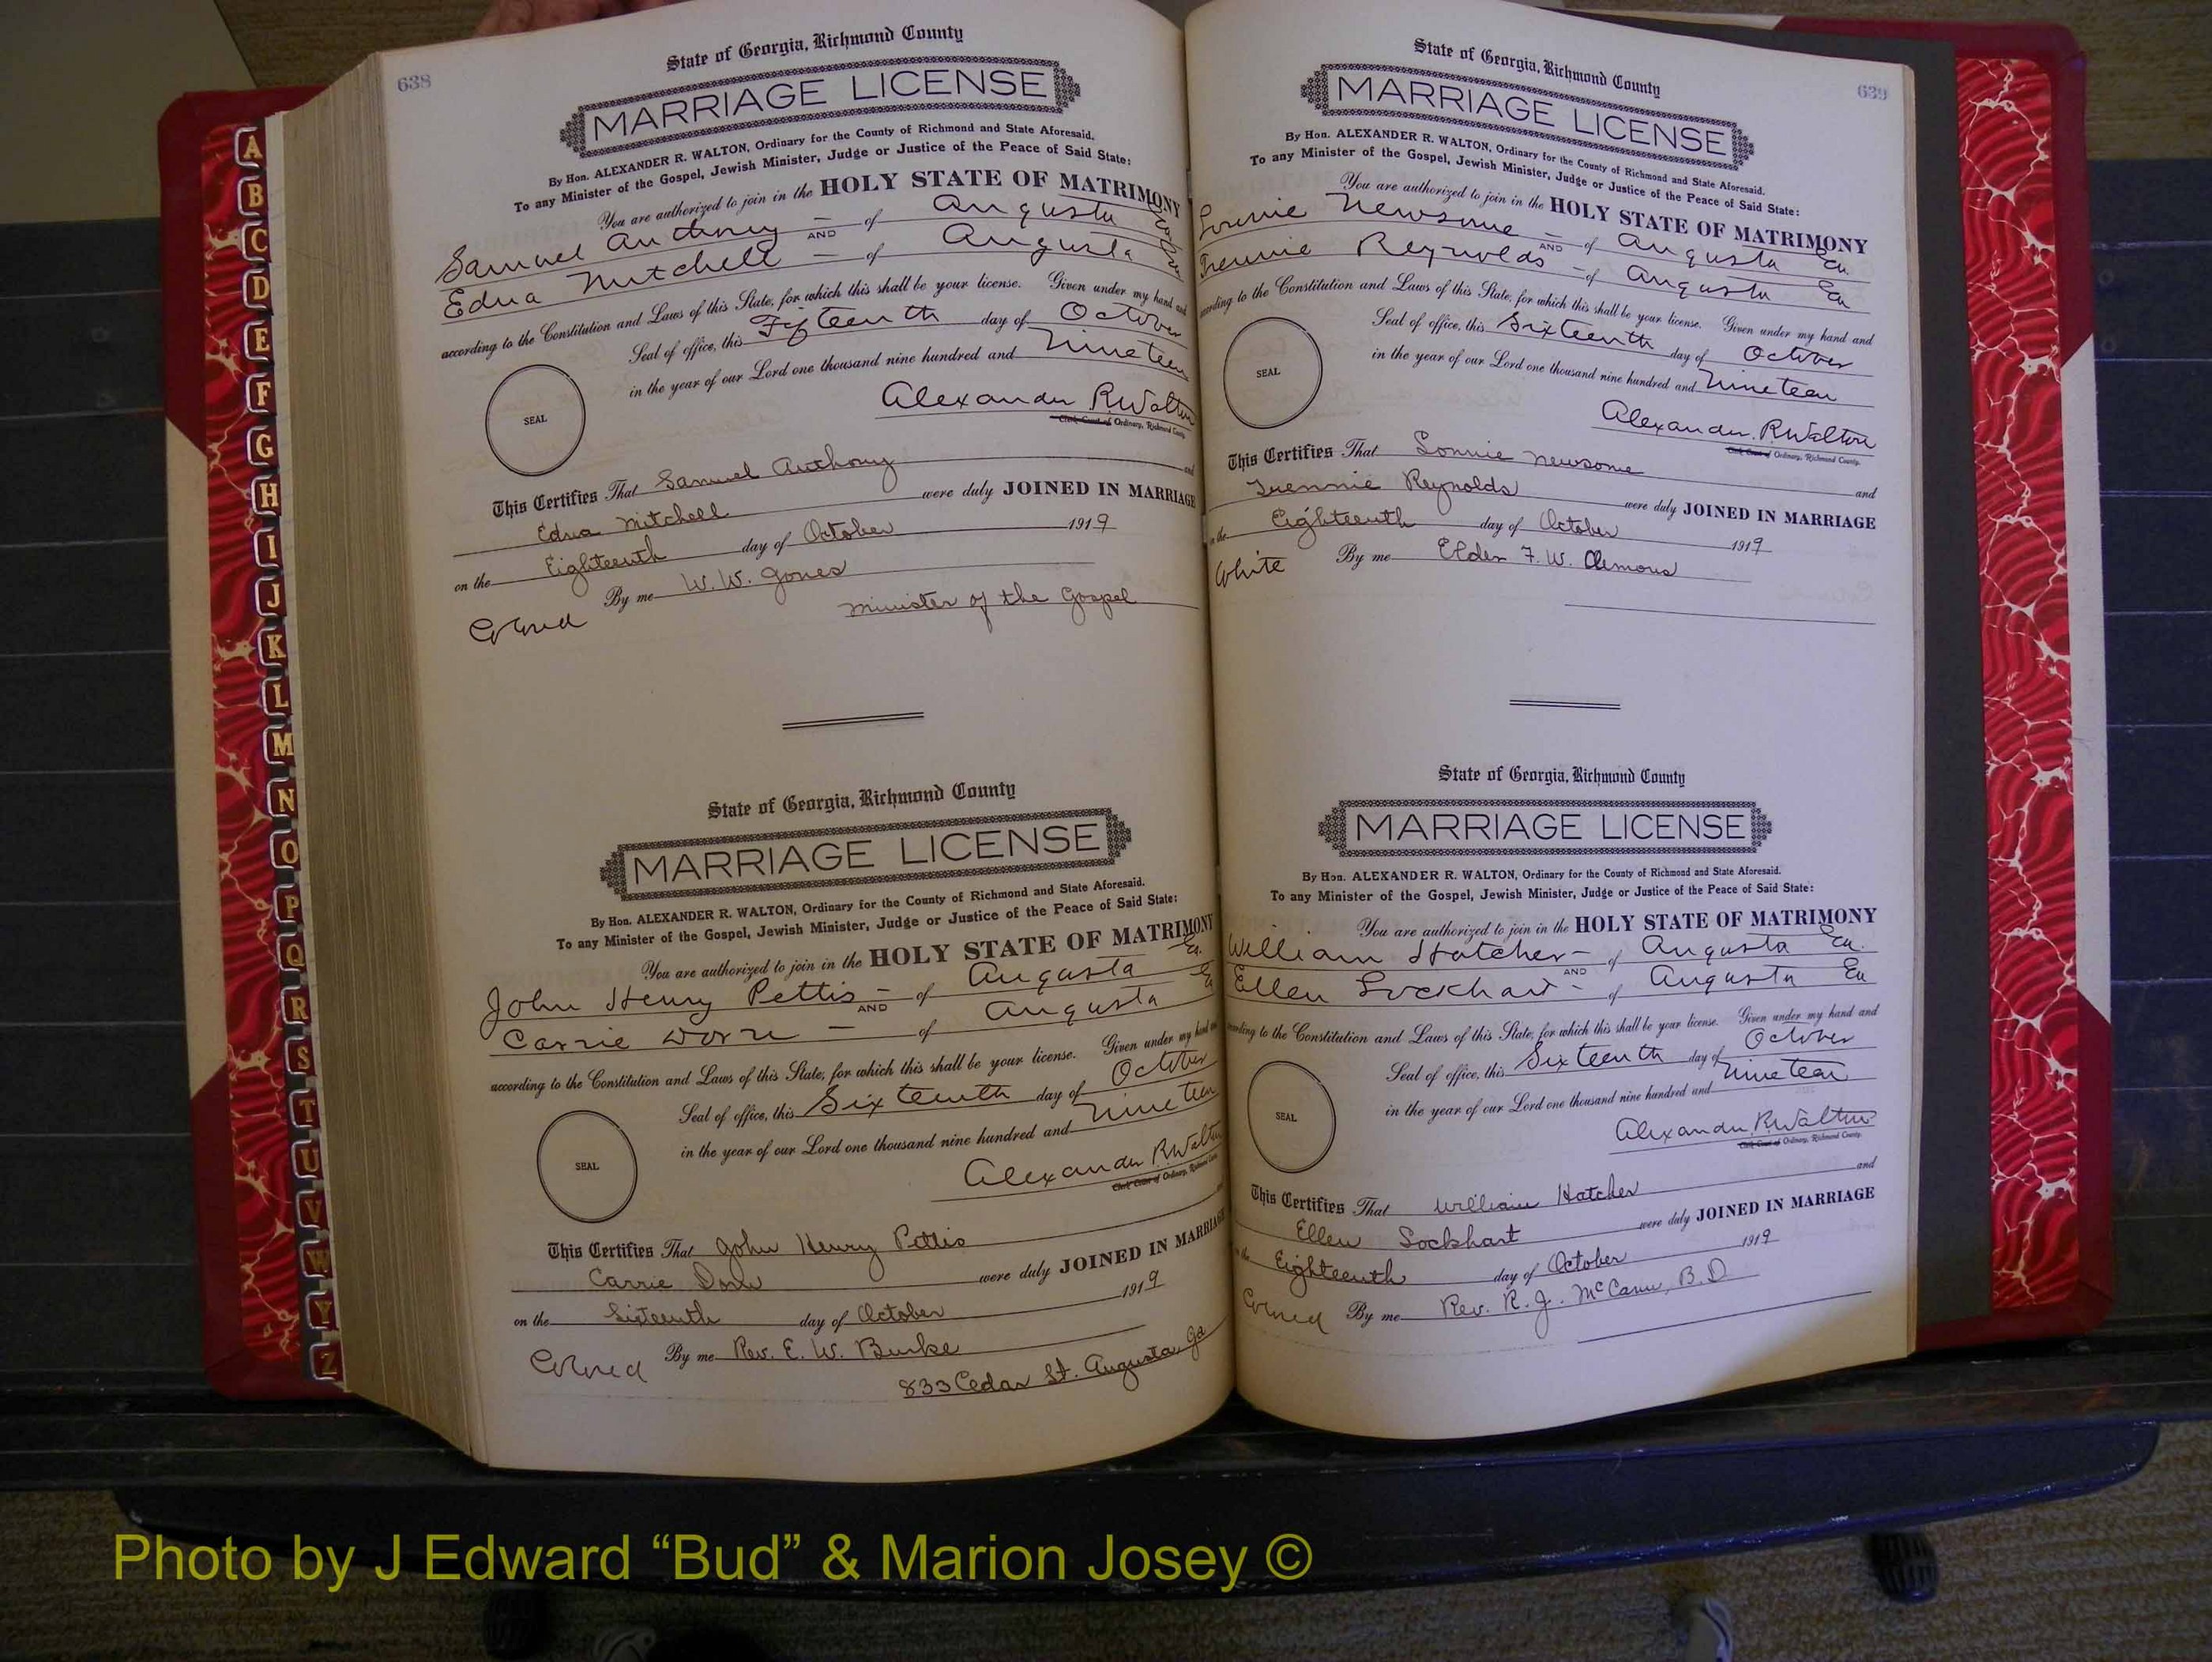 A
B
C
D
E
F
G
H
I
J
K
L
M
N
O
P
Q
R
S
T
U
V
W
Y
Z
638
State of Georgia, Richmond County
MARRIAGE LICENSE
By Hon. ALEXANDER R. WALTON, Ordinary for the County of Richmond and State Aforesaid.
To any Minister of the Gospel, Jewish Minister, Judge or Justice of the Peace of Said State:
You are authorized to join in the HOLY STATE OF MATRIMONY
Samuel Anthony — of Augusta
AND
Edna Mitchell — of Augusta
according to the Constitution and Laws of this State, for which this shall be your license. Given under my hand and
Seal of office, this Fifteenth day of October
in the year of our Lord one thousand nine hundred and Nineteen
SEAL
Alexander R Walton
Clerk Court of Ordinary, Richmond County.
This Certifies That Samuel Anthony and
Edna Mitchell were duly JOINED IN MARRIAGE
on the Eighteenth day of October 1919
Colored By me W. W. Jones
Minister of the Gospel
State of Georgia, Richmond County
MARRIAGE LICENSE
By Hon. ALEXANDER R. WALTON, Ordinary for the County of Richmond and State Aforesaid.
To any Minister of the Gospel, Jewish Minister, Judge or Justice of the Peace of Said State:
You are authorized to join in the HOLY STATE OF MATRIMONY
John Henry Pettis — of Augusta Ga.
AND
Carrie — of Augusta Ga
according to the Constitution and Laws of this State, for which this shall be your license. Given under my hand and
Seal of office, this Sixteenth day of October
in the year of our Lord one thousand nine hundred and Nineteen
SEAL
Alexander R Walton
Clerk Court of Ordinary, Richmond County.
This Certifies That John Henry Pettis
Carrie were duly JOINED IN MARRIAGE
on the Sixteenth day of October 1919
Colored By me Rev. E. W. Burke
833 Cedar St. Augusta, Ga
639
State of Georgia, Richmond County
MARRIAGE LICENSE
By Hon. ALEXANDER R. WALTON, Ordinary for the County of Richmond and State Aforesaid.
To any Minister of the Gospel, Jewish Minister, Judge or Justice of the Peace of Said State:
You are authorized to join in the HOLY STATE OF MATRIMONY
Lonnie Newsome — of Augusta Ga.
AND
Reynolds — of Augusta Ga
according to the Constitution and Laws of this State, for which this shall be your license. Given under my hand and
Seal of office, this Sixteenth day of October
in the year of our Lord one thousand nine hundred and Nineteen
SEAL
Alexander R Walton
Clerk Court of Ordinary, Richmond County.
This Certifies That Lonnie Newsome and
Reynolds were duly JOINED IN MARRIAGE
on the Eighteenth day of October 1919
White By me Elder F. W. Clemons
State of Georgia, Richmond County
MARRIAGE LICENSE
By Hon. ALEXANDER R. WALTON, Ordinary for the County of Richmond and State Aforesaid.
To any Minister of the Gospel, Jewish Minister, Judge or Justice of the Peace of Said State:
You are authorized to join in the HOLY STATE OF MATRIMONY
William Hatcher — of Augusta Ga.
AND
Ellen Lockhart — of Augusta Ga
according to the Constitution and Laws of this State, for which this shall be your license. Given under my hand and
Seal of office, this Sixteenth day of October
in the year of our Lord one thousand nine hundred and Nineteen
SEAL
Alexander R Walton
Clerk Court of Ordinary, Richmond County.
This Certifies That William Hatcher and
Ellen Lockhart were duly JOINED IN MARRIAGE
on the Eighteenth day of October 1919
Colored By me Rev. R. J. McCann, B.D.
Photo by J Edward “Bud” & Marion Josey ©